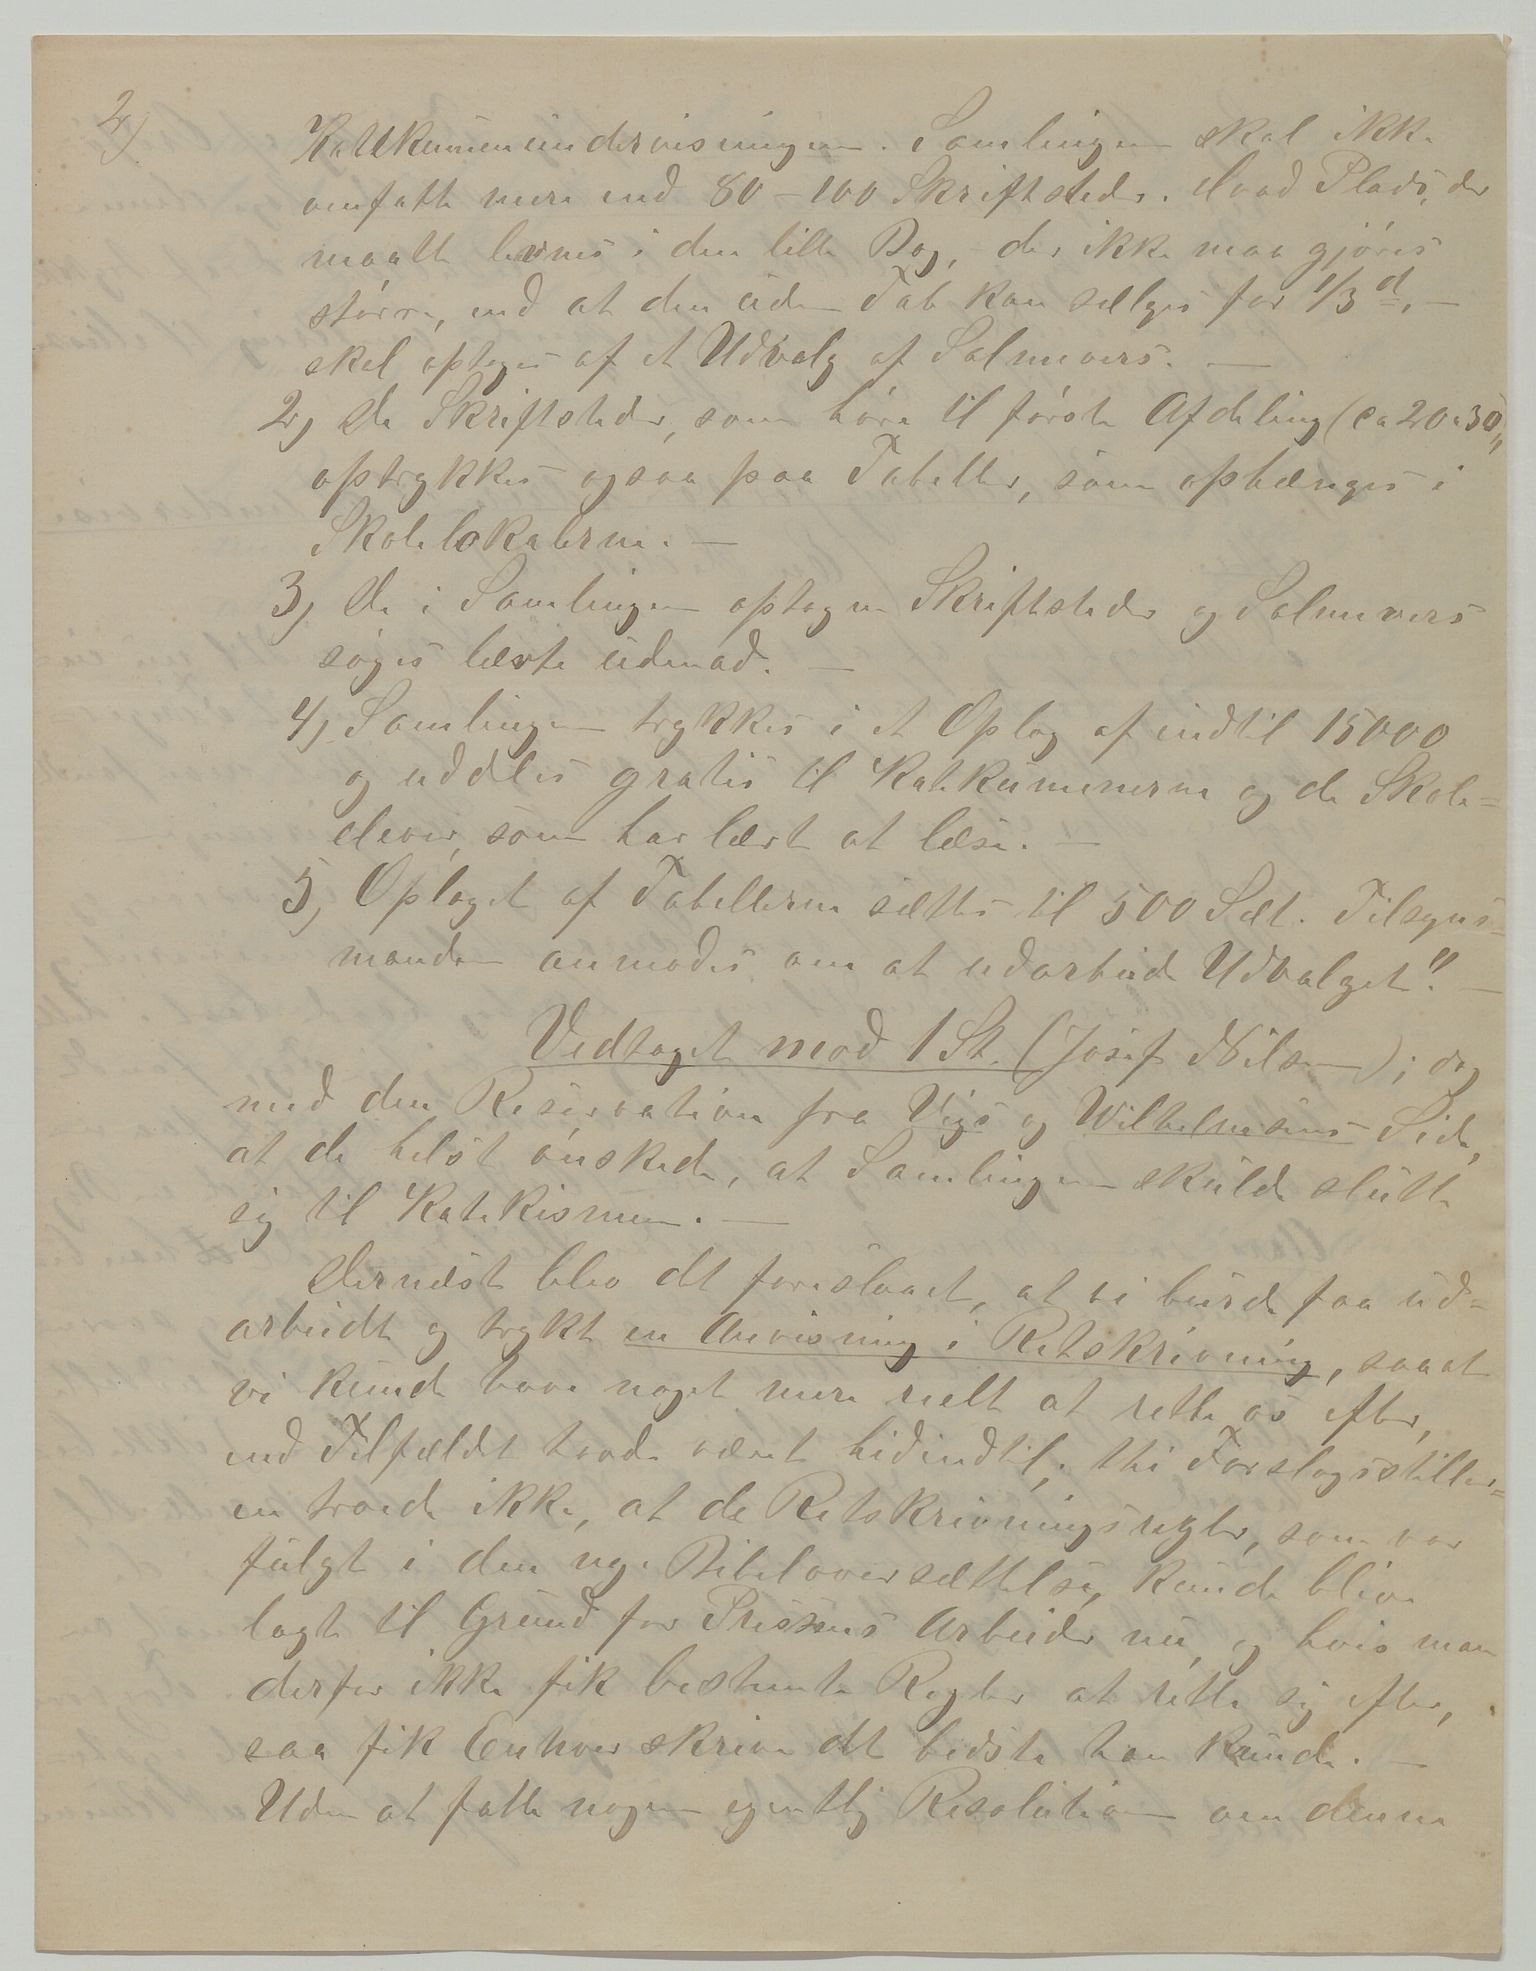 2)
Katekumenundervisningen. Samlingen skal ikke
omfatte mere end 80–100 Skriftsteder. Hvad Plads, der
maatte levnes i den lille Bog, der ikke maa gjøres
større, end at den uden Tab kan sælges for 1/3 d, —
skal optages af et Udvalg af Salmevers. —
2, De Skriftsteder, som høre til første Afdeling (ca 20 a 30,,
optrykkes ogsaa paa Tabeller, som ophænges i
Skolelokalerne. —
3, De i Samlingen optagne Skriftsteder og Salmevers
søges lærte udenad. —
4, Samlingen trykkes i et Oplag af indtil 15000
og uddeles gratis til Katekumenerne og de Skole=
elever, som har lært at læse. —
5, Oplaget af Tabellerne sættes til 500 Sæt. Tilsyns-
manden anmodes om at udarbeide Udvalget". —
Vedtaget mod 1 St. (Josef Nilsen); dog
med den Reservation fra Vigs og Wilhelmsens Side,
at de helst ønskede, at Samlingen skulde slutte
sig til Katekismen. —
Dernæst blev det foreslaaet, at vi burde faa ud=
arbeidt og trykt en Anvisning i Retskrivning, saaat
vi kunde have noget mere reelt at rette os efter,
end Tilfældet havde været hidindtil; thi Forslagsstiller=
en troede ikke, at de Retskrivningsregler, som var
fulgt i den nye Bibeloversættelse, kunde blive
lagte til Grund for Pressens Arbeider nu, og hvis man
derfor ikke fik bestemte Regler at rette sig efter,
saa fik Enhver skrive det bedste han kunde. —
Uden at fatte nogen egentlig Resolution om denne